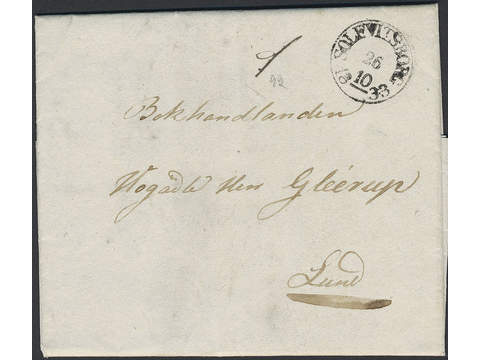 SÖLFVITSBORG
26
10
1833
92
Bokhandlanden
Högädle Herr Gleerup
Lund